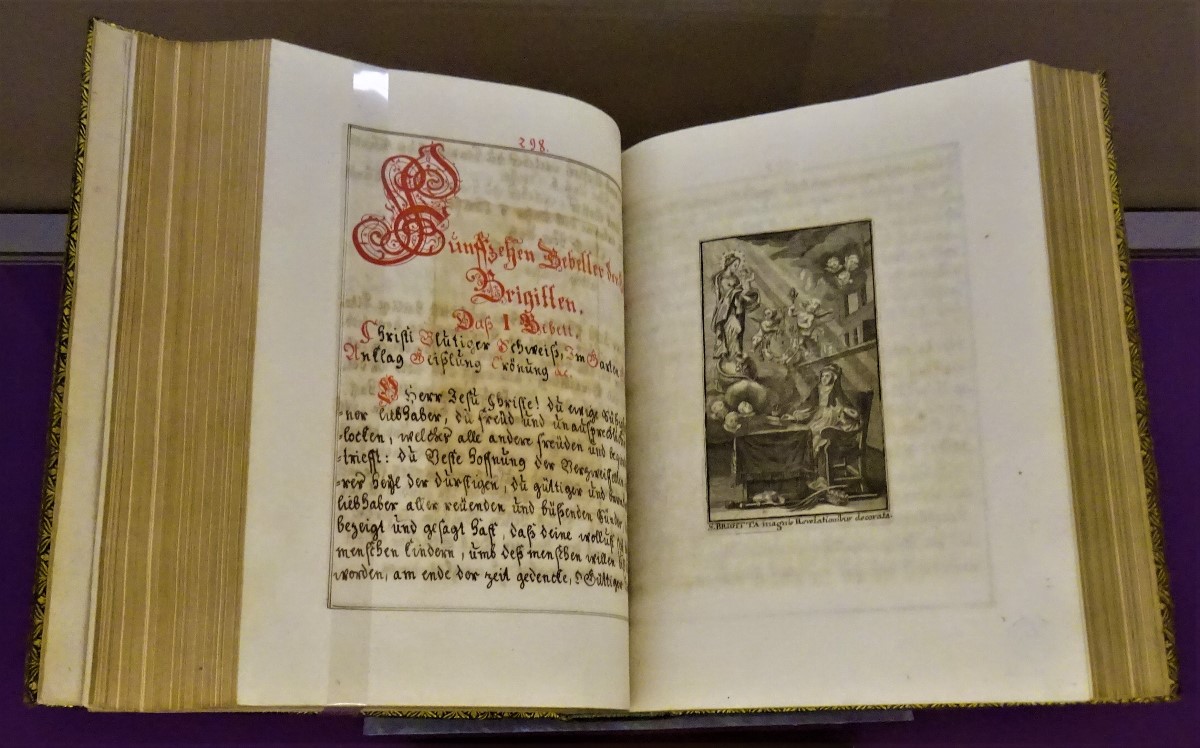 298.
Fünffzehen Gebetter der
Brigitten.
Daß I Gebett.
Christi Blütiger Schweiß, Im Garten
Anklag Geißlüng Crönüng &c.
O Herr Jesü Christe! dü ewige
-ner liebhaber, dü freüd und
-locken, welcher alle andere freüden und
-trifft: dü Beste hoffnüng der
-rer heyl der dürfftigen, dü gültiger und
liebhaber aller reüenden und büßenden Sünder
bezeigt und gesagt hast, daß deine wollust
menschen kindern, umb deß menschen willen
worden, am ende der zeit gedencke, O Gültiger
S. BRIGITTA magnis Revelationibus decorata.